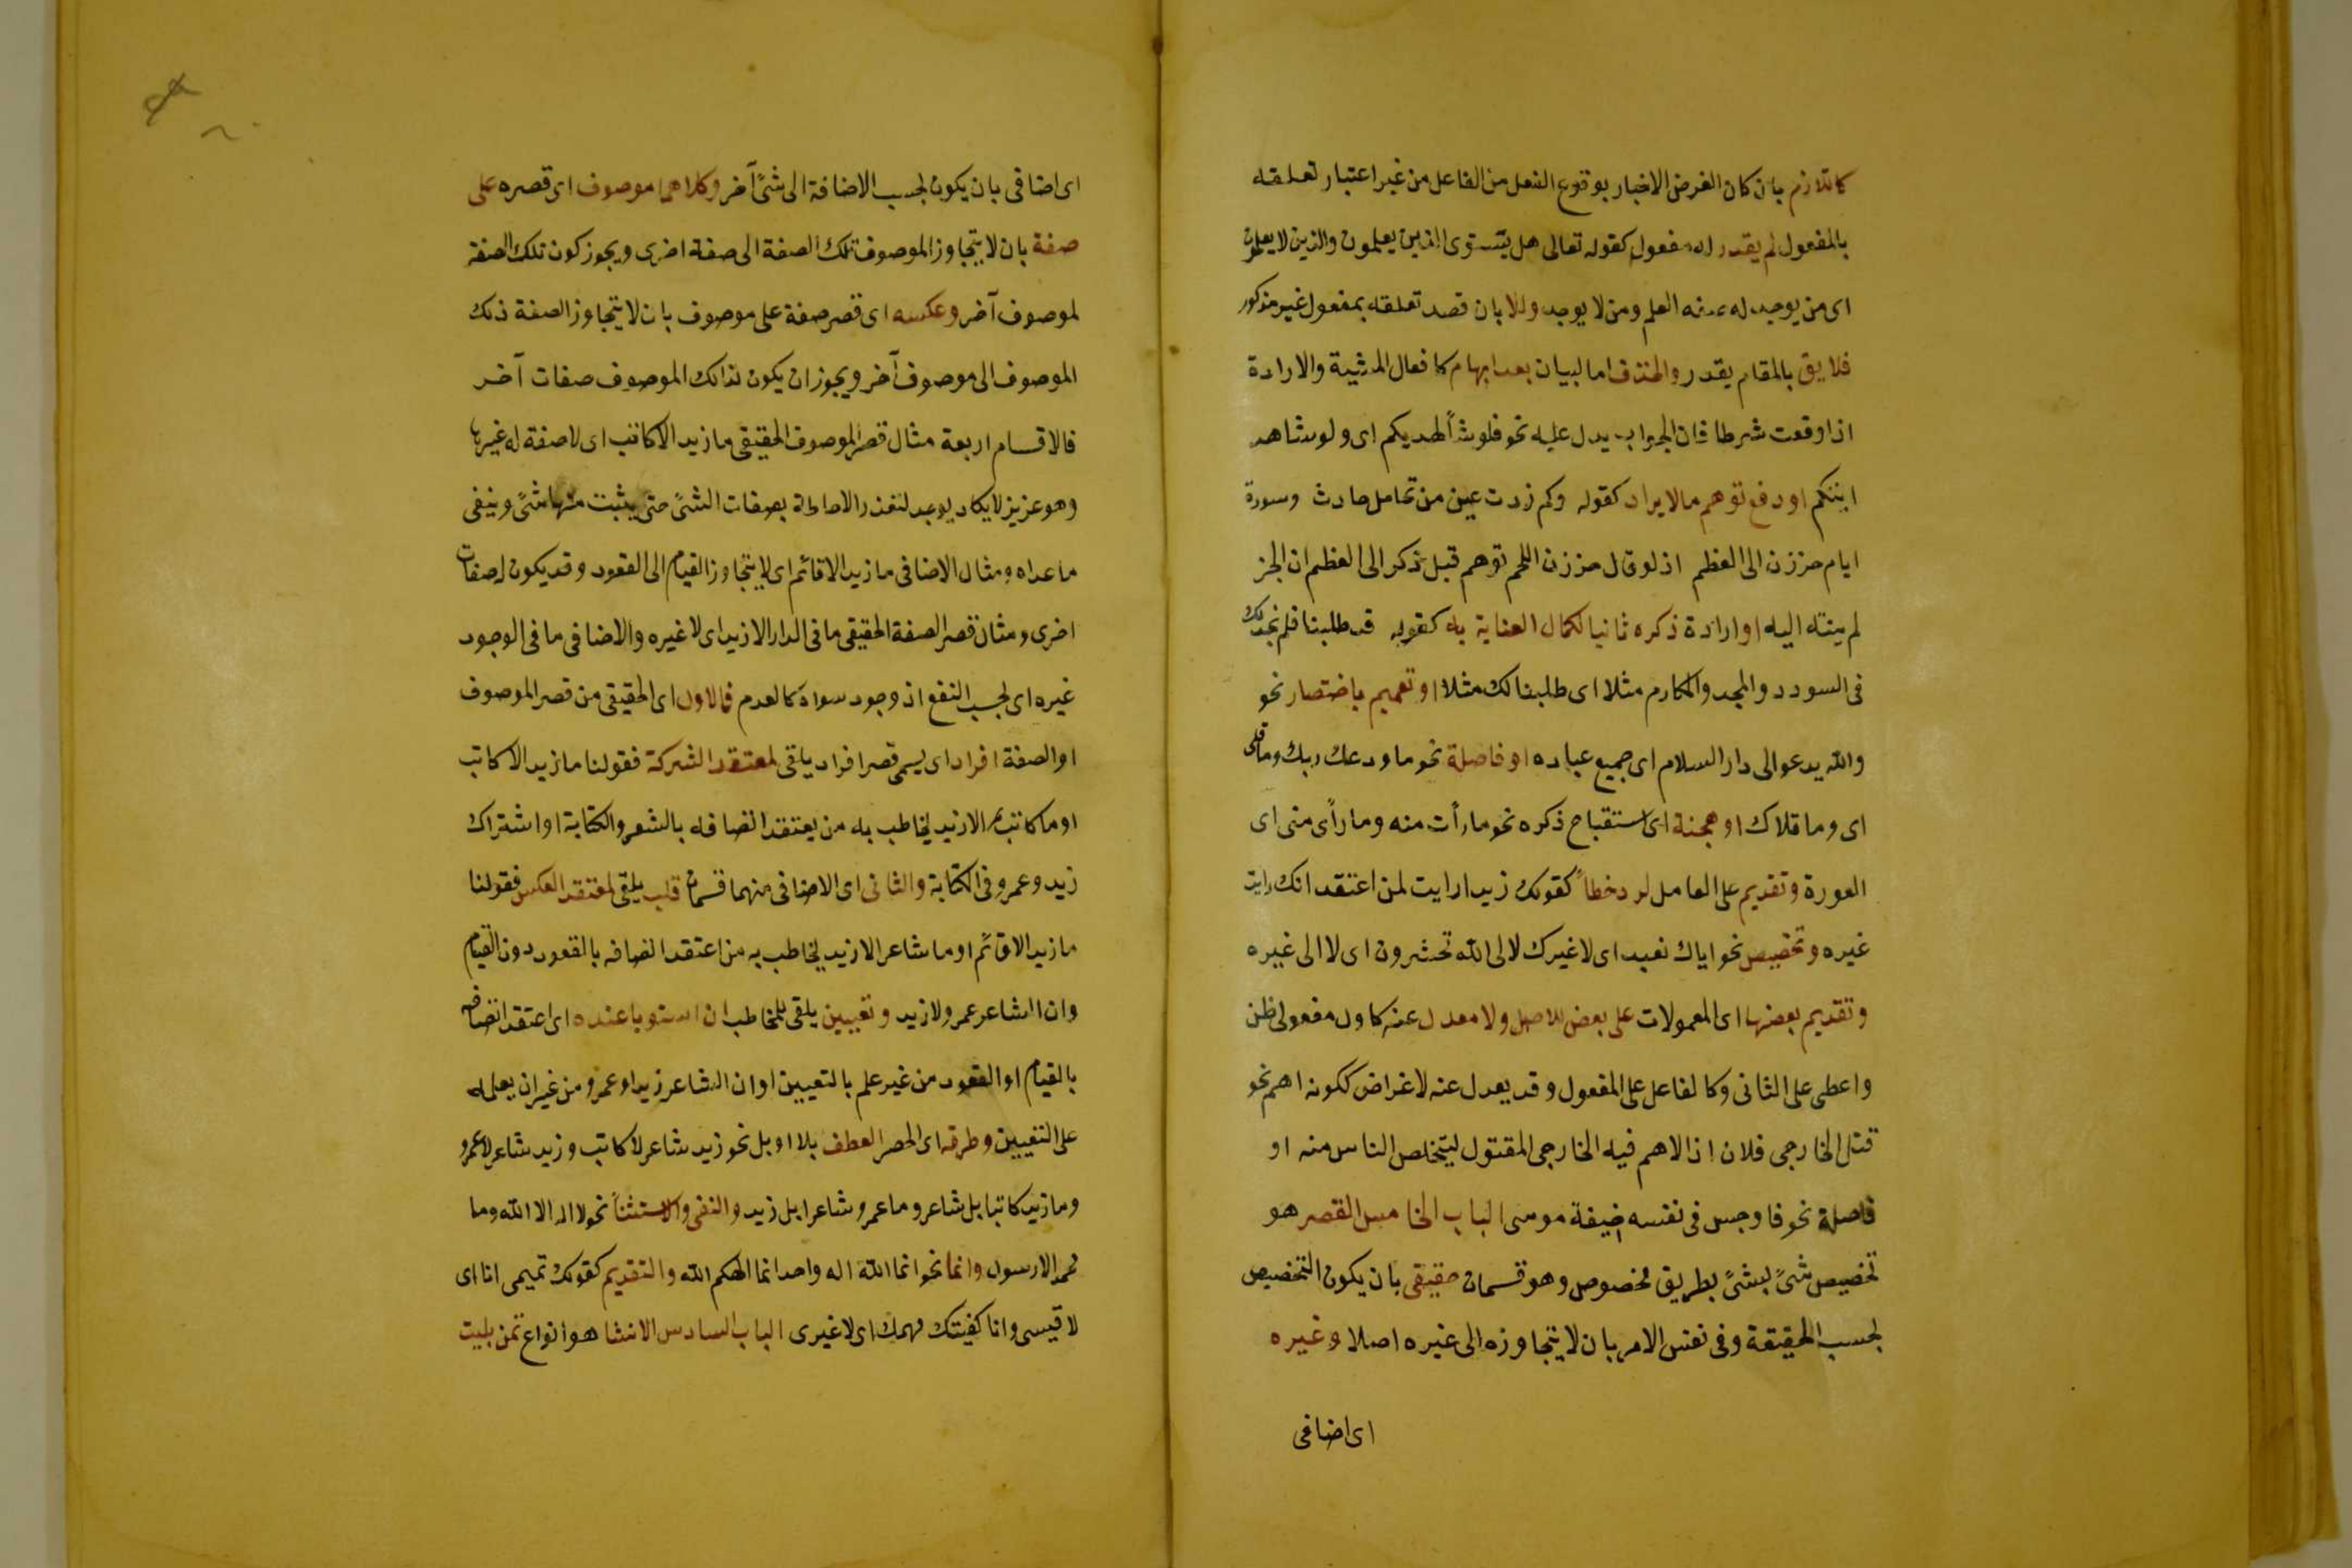 كاللازم بان كان الغرض الاخبار بوقوع الفعل من الفاعل من غير اعتبار تعلقه
بالمفعول لم يقدر له مفعول كقوله تعالى هل يستوى الذين يعلمون والذين لا يعلمون
اى من يوجد له صفة العلم ومن لا يوجد والا بان قصد تعلقه بمفعول غير مذكور
فلايق بالمقام يقدر والحذف اما لبيان بعد ابهام كافعال المشية والارادة
اذا وقعت شرطا فان الجواب يدل عليه نحو فلو شأ لهديكم اى ولو شاهد
ايتكم او دفع توهم مالا يراد كقوله وكم زدت عين من تحامل حادث وسورة
ايام حززن الى العظم اذ لو قال حززن اللحم توهم قبل ذكر الى العظم ان الجز
لم ينته اليه او ارادة ذكره ثانيا لكمال العناية به كقوله قد طلبنا فلم نجد لك
فى السودد والمجد والمكارم مثلا اى طلبنا لك مثلا او تعميم باختصار نحو
والله يدعو الى دار السلام اى جميع عباده او فاصلة نحو ما ودعك ربك وما قلى
اى وما قلاك او هجنة اى استقباح ذكره نحو ما رأت منه وما رأى منى اى
العورة وتقديم على العامل لرد خطأ كقولك زيدا رايت لمن اعتقد انك رايت
غيره وتخصيص نحو اياك نعبد اى لا غيرك لالى الله تحشرون اى لا الى غيره
وتقديم بعضها اى المعمولات على بعض للاصل ولا معدل عنه كاول مفعولى ظن
واعطى على الثانى وكالفاعل على المفعول وقد يعدل عنه لاغراض ككونه اهم نحو
قتل الخارجى فلان اذ الاهم فيه الخارجى المقتول ليتخلص الناس منه او
فاصلة نحو فاوجس فى نفسه خيفة موسى الباب الخامس القصر هو
تخصيص شئ بشئ بطريق مخصوص وهو قسمان حقيقى بان يكون التخصيص
بحسب الحقيقة وفى نفس الامر بان لا يتجاوزه الى غيره اصلا وغيره
اى اضافى
اى اضافى بان يكون بحسب الاضافة الى شئ آخر وكلاهما موصوف اى قصره على
صفة بان لا يتجاوز الموصوف تلك الصفة الى صفة اخرى ويجوز كون تلك الصفة
لموصوف آخر وعكسه اى قصر صفة على موصوف بان لا يتجاوز الصفة ذلك
الموصوف الى موصوف آخر ويجوز ان يكون لذالك الموصوف صفات آخر
فالاقسام اربعة مثال قصر الموصوف الحقيقى ما زيد الا كاتب اى لا صفة له غيرها
وهو عزيز لا يكاد يوجد لتعذر الاحاطة بصفات الشئ حتى يثبت منها شئ وينفى
ما عداه ومثال الاضافى ما زيد الا قائم اى لا يتجاوز القيام الى القعود وقد يكون له صفات
اخرى ومثان قصر الصفة الحقيقى ما فى الدار الا زيد اى لا غيره والاضافى ما فى الوجود
غيره اى بحسب النفع اذ وجود سواه كالعدم فالاول اى الحقيقى من قصر الموصوف
او الصفة افراد اى يسمى قصر افراد ياقى لمعتقد الشركة فقولنا ما زيد الا كاتب
او ما كاتب الا زيد يخاطب به من يعتقد اتصافه بالشعر والكتابة او اشتراك
زيد وعمرو فى الكتابة والثانى اى الاضافى منهما قسمان قلب يلقى لمعتقد العكس فقولنا
ما زيد الا قائم او ما شاعر الا زيد يخاطب به من اعتقد اتصافه بالقعود دون القيام
وان الشاعر عمرو لا زيد وتعيين يلقى للمخاطب ان استويا عنده اى اعتقد اتصافه
بالقيام او القعود من غير علم بالتعيين او ان الشاعر زيد او عمرو من غير ان يعلمه
على التعيين وطرقه اى الحصر العطف بلا او بل نحو زيد شاعر لا كاتب وزيد شاعر لا عمرو
وما زيد كاتبا بل شاعر وما عمرو شاعرا بل زيد والنفى والاستثنأ نحو لا اله الا الله وما
محمد الا رسول وانما نحو انما الله اله واحد انما الهكم الله والتقديم كقولك تميمى انا اى
لا قيسى وانا كفيتك مهمك اى لا غيرى الباب السادس الانشا هو انواع تمن بليت